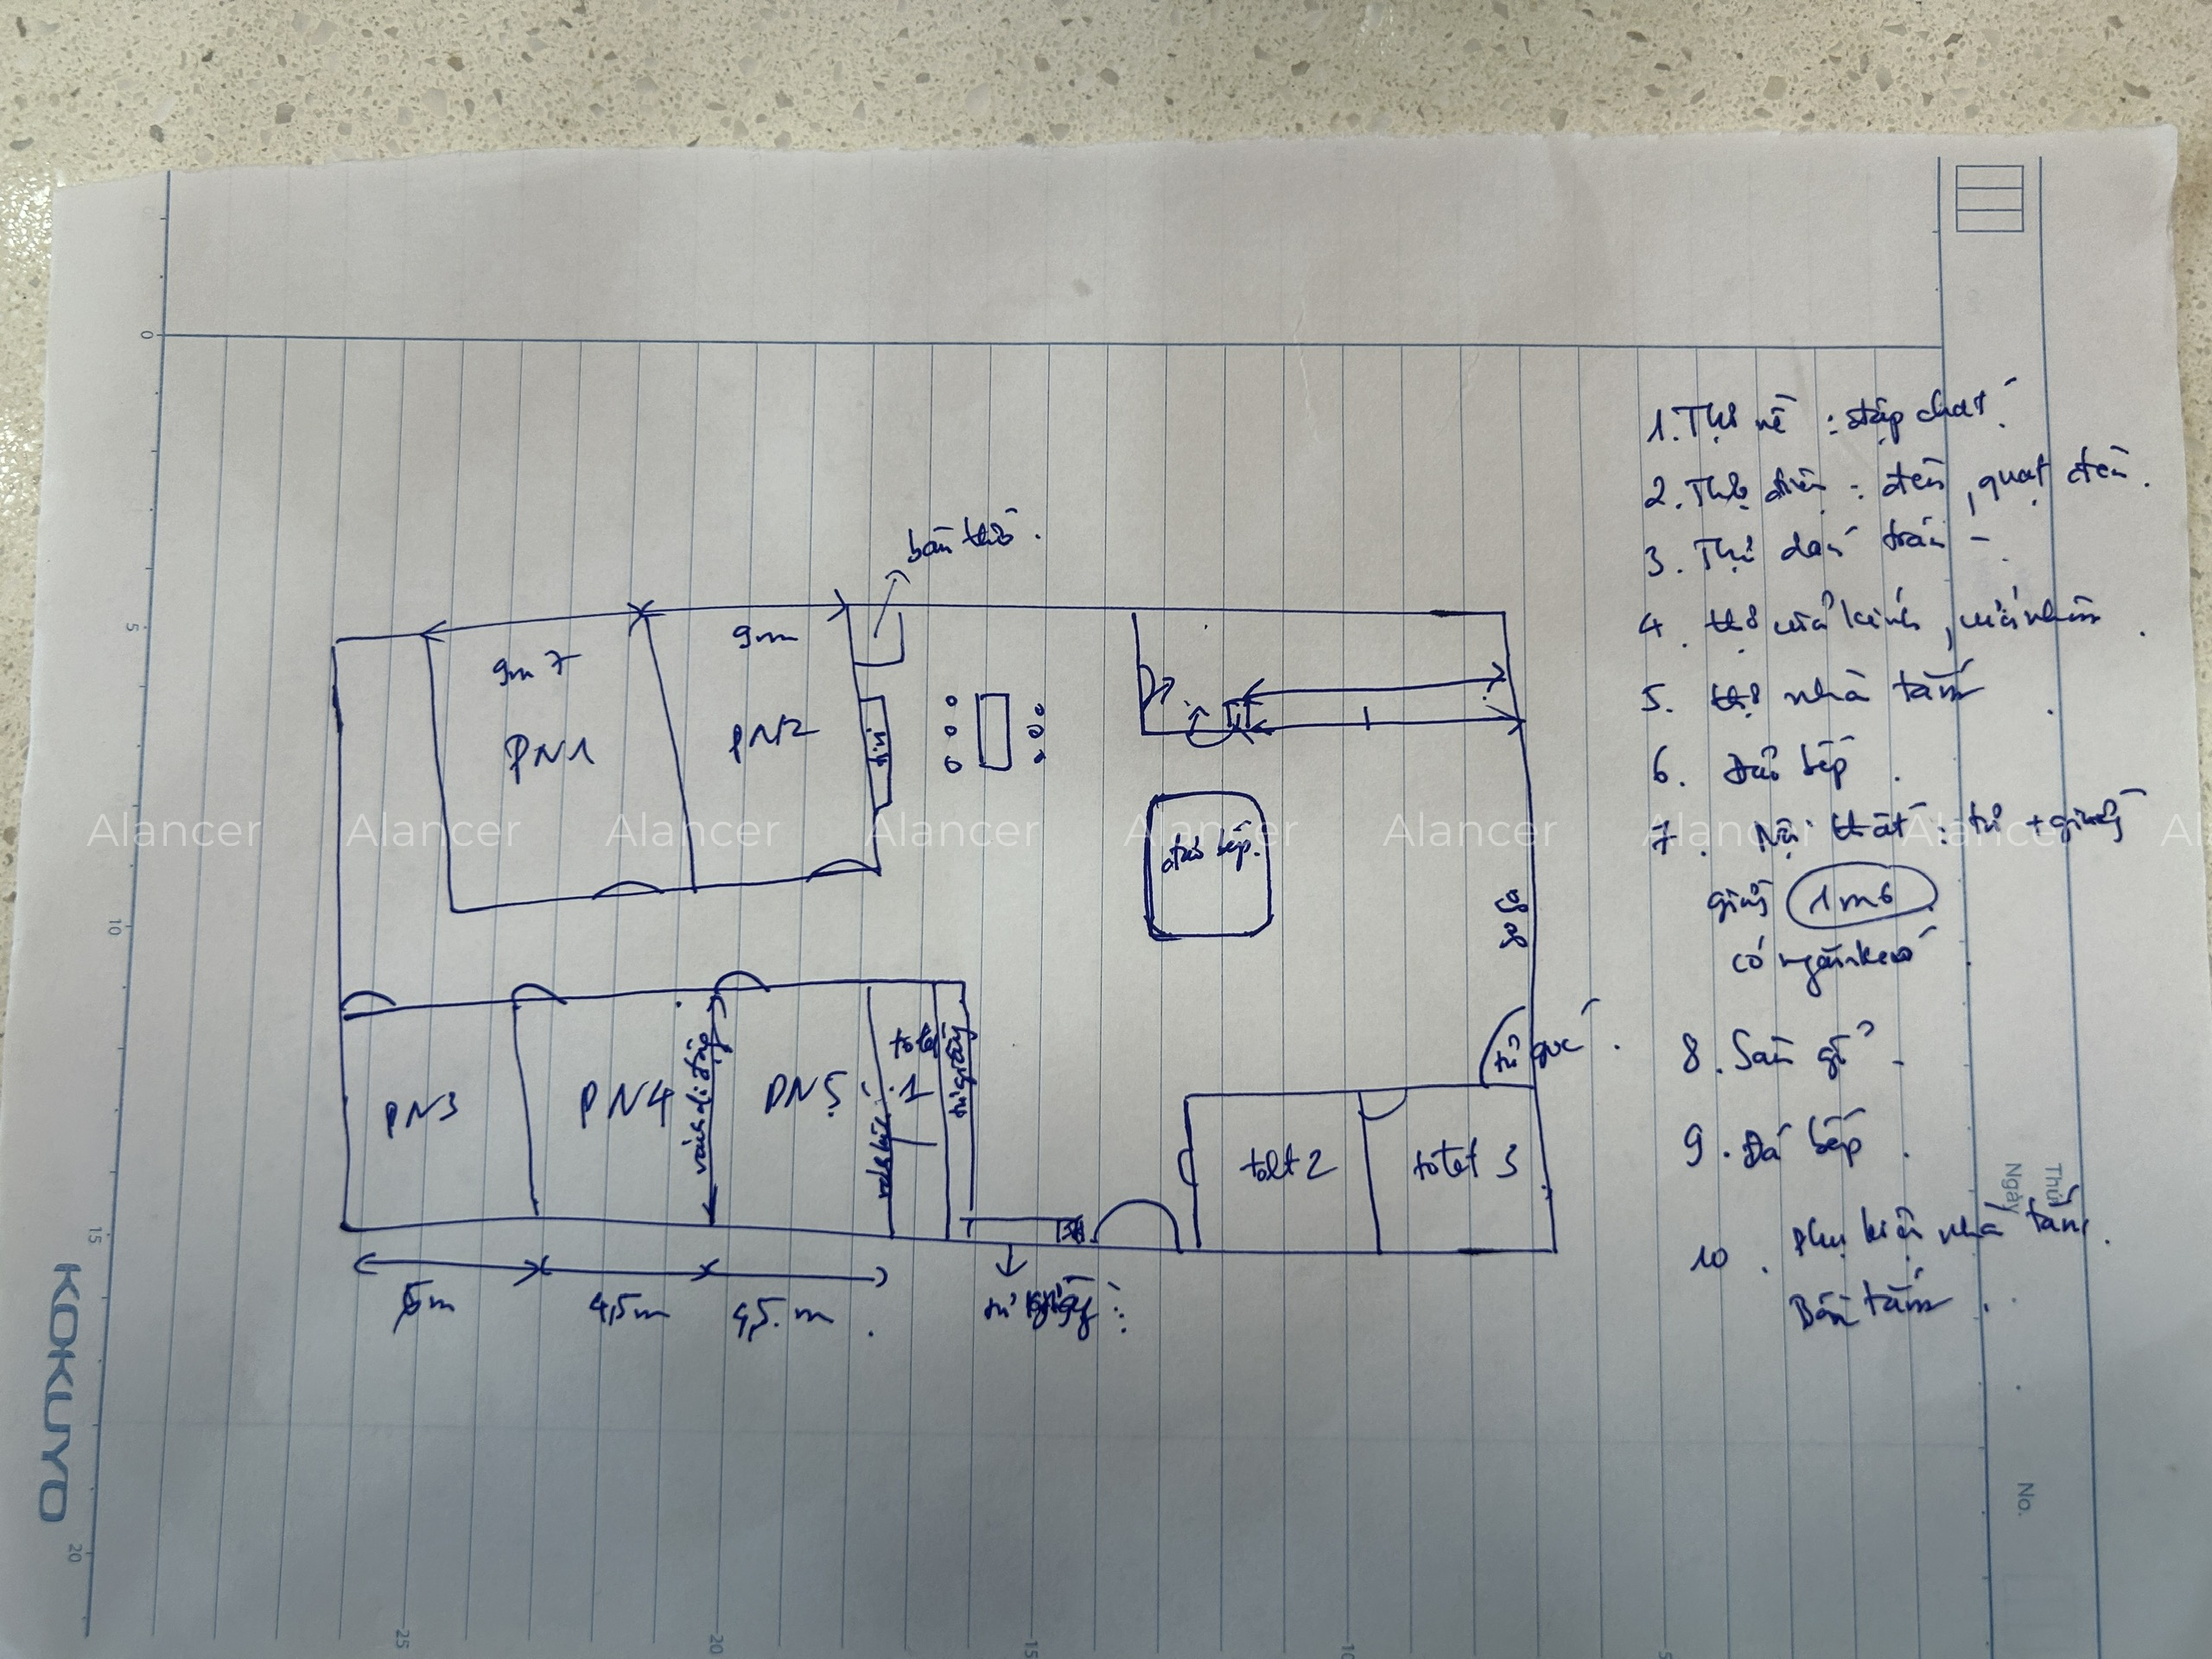 bàn thờ.
9m7
9m
PN1
PN2
tivi
đảo bếp.
PN3
PN4
vách di động
PN5
toilet
1
vách kính
tủ giầy
tủ góc
tolt 2
totet 3
5m
4,5m
4,5.m
tủ giầy
1. Thợ nề : đập phá.
2. Thợ điện : đèn, quạt đèn.
3. Thợ trần
4. thợ cửa kính, cửa nhôm.
5. thợ nhà tắm
6. Đảo bếp.
7. Nội thất : tủ + giường
giường 1m6
có ngăn kéo
8. Sàn gỗ
9. Đá bếp.
10. Phụ kiện nhà tắm.
Bồn tắm.
Alancer Alancer Alancer Alancer Alancer Alancer Alancer Alancer Al
0
5
10
15
20
KOKUYO
25
20
15
10
5
Thứ
Ngày
No.